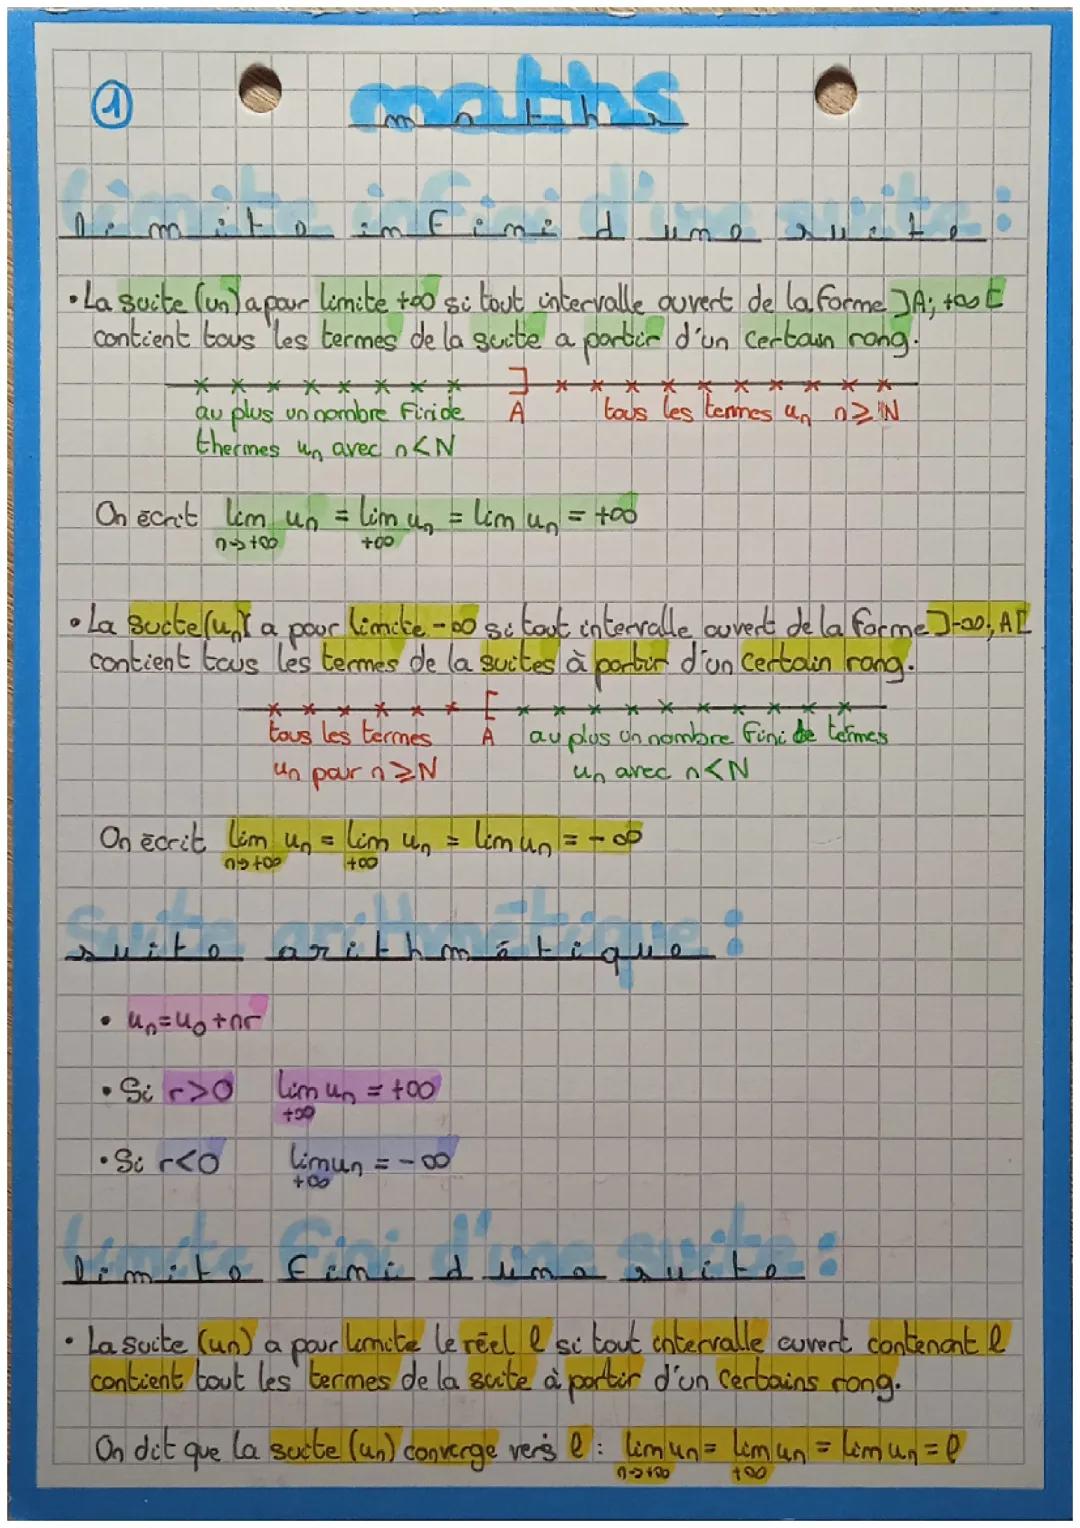 ①
maths
limite infini d'une suite :
• La suite (un) a pour limite +∞ si tout intervalle ouvert de la forme ]A; +∞[
contient tous les termes de la suite a partir d'un certain rang.
au plus un nombre fini de A tous les termes un n⩾N
thermes un avec n<N
On écrit lim un = lim un = lim un = +∞
n→+∞ +∞
• La suite (un) a pour limite -∞ si tout intervalle ouvert de la forme ]-∞; A[
contient tous les termes de la suites à partir d'un certain rang.
tous les termes A au plus un nombre fini de termes
un pour n⩾N un avec n<N
On écrit lim un = lim un = lim un = -∞
n→+∞ +∞
suite arithmétique :
• un=u0+nr
• Si r>0 lim un = +∞
+∞
• Si r<0 lim un = -∞
+∞
limite fini d'une suite :
• La suite (un) a pour limite le réel l si tout intervalle ouvert contenant l
contient tout les termes de la suite à partir d'un certains rang.
On dit que la suite (un) converge vers l : lim un = lim un = lim un = l
n→+∞ +∞